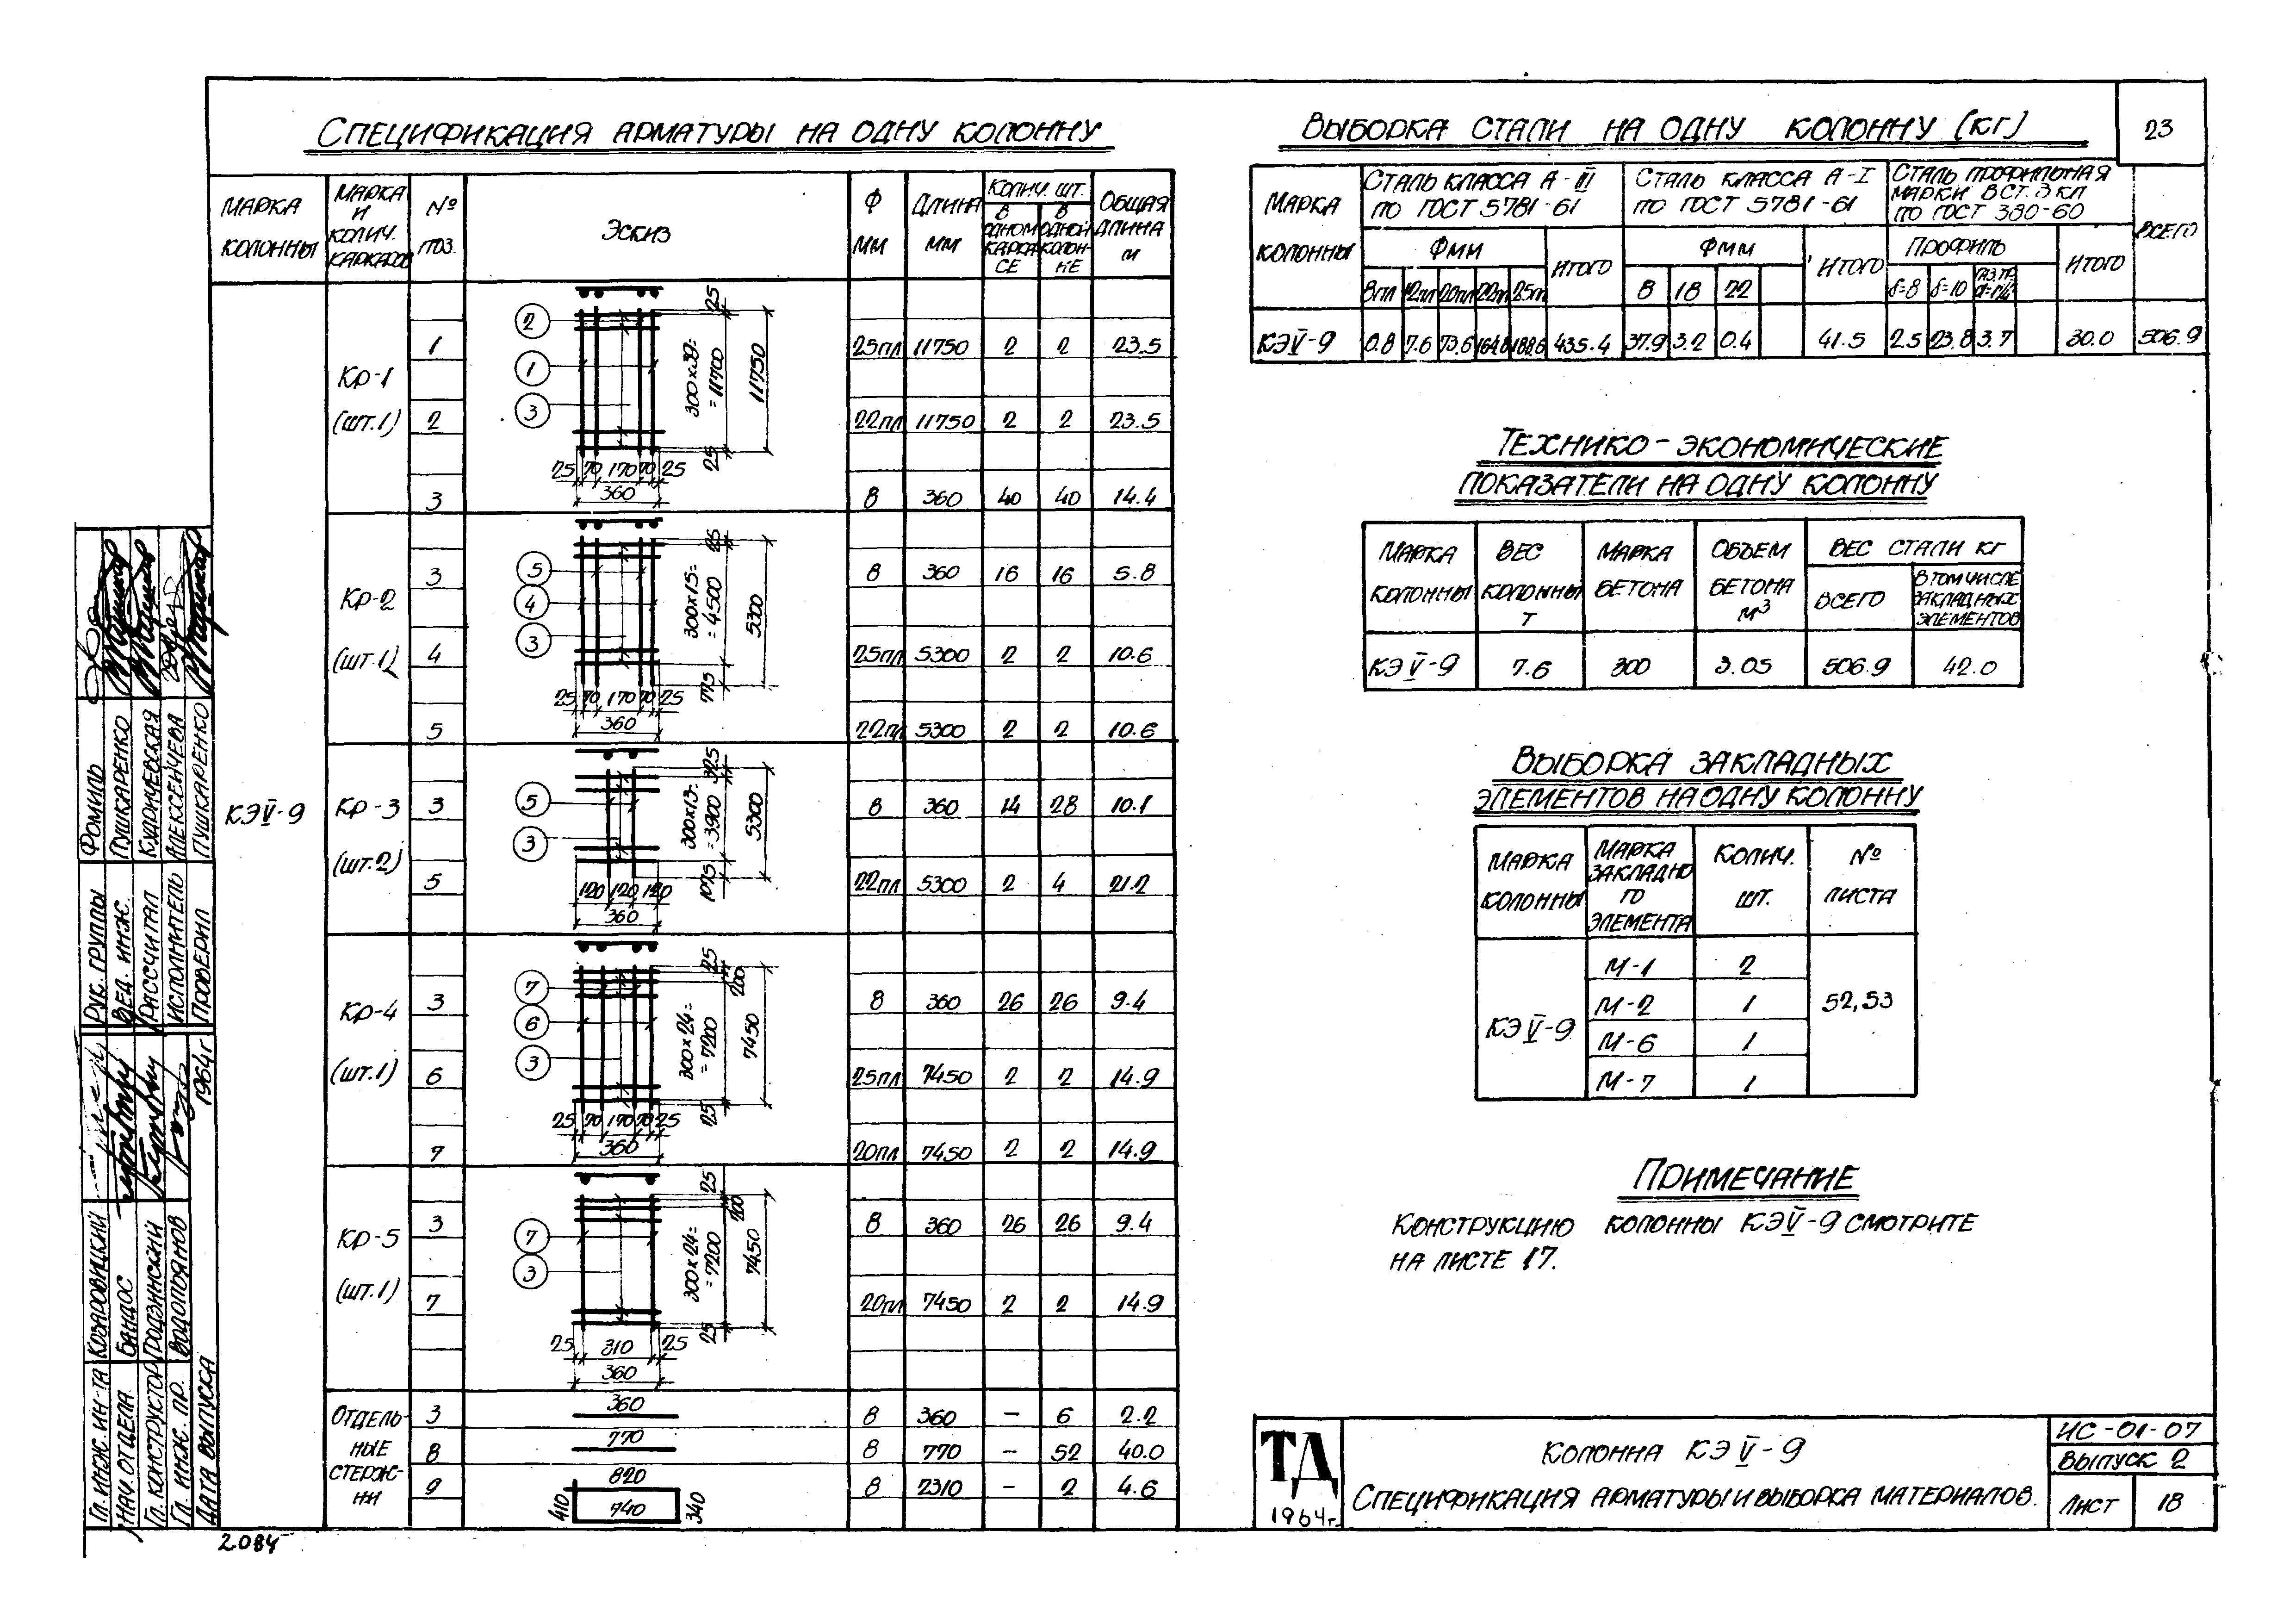 23
Спецификация арматуры на одну колонну
Марка колонны
Марка и колич. каркасов
№ поз.
Эскиз
Ф мм
Длина мм
Колич. шт.
в одном каркасе
в одной колонне
Общая длина м
КЭV-9
Кр-1 (шт.1)
2
1
3
25
300×39= =11700
11750
25
25 70 170 70 25
360
1 25пл 11750 2 2 23.5
2 22пл 11750 2 2 23.5
3 8 360 40 40 14.4
Кр-2 (шт.1)
5
4
3
25
300×15= =4500
5300
775
25 70 170 70 25
360
3 8 360 16 16 5.8
4 25пл 5300 2 2 10.6
5 22пл 5300 2 2 10.6
Кр-3 (шт.2)
5
3
325
300×13= =3900
5300
1075
120 120 120
360
3 8 360 14 28 10.1
5 22пл 5300 2 4 21.2
Кр-4 (шт.1)
7
6
3
25
200
300×24= =7200
7450
25
25 70 170 70 25
360
3 8 360 26 26 9.4
6 25пл 7450 2 2 14.9
7 20пл 7450 2 2 14.9
Кр-5 (шт.1)
7
3
25
200
300×24= =7200
7450
25
25 310 25
360
3 8 360 26 26 9.4
7 20пл 7450 2 2 14.9
Отдельные стержни
3 360 8 360 – 6 2.2
8 770 8 770 – 52 40.0
9 820 410 740 340 8 2310 – 2 4.6
Выборка стали на одну колонну (кг)
Марка колонны
Сталь класса А-III по ГОСТ 5781-61
Сталь класса А-I по ГОСТ 5781-61
Сталь профильная марки В Ст. 3 кп по ГОСТ 380-60
Всего
Фмм
Итого
Фмм
Итого
Профиль
Итого
8пл 12пл 20пл 22пл 25пл
8 18 22
δ=8 δ=10
КЭV-9 0.8 7.6 73.6 164.8 188.6 435.4 37.9 3.2 0.4 41.5 2.5 23.8 3.7 30.0 506.9
Технико-экономические
показатели на одну колонну
Марка колонны
Вес колонны т
Марка бетона
Объем бетона м³
Вес стали кг
Всего
В том числе закладных элементов
КЭV-9 7.6 300 3.05 506.9 42.0
Выборка закладных
элементов на одну колонну
Марка колонны
Марка закладного элемента
Колич. шт.
№ листа
КЭV-9
М-1 2
М-2 1
М-6 1
М-7 1
52,53
Примечание
Конструкцию колонны КЭV-9 смотрите
на листе 17.
ТД
1964г.
Колонна КЭV-9
Спецификация арматуры и выборка материалов.
ИС-01-07
Выпуск 2
Лист 18
Рук. группы Фомиль
Вед. инж. Пушкаренко
Рассчитал
Исполнитель Алексейчева
Проверил Пушкаренко
Гл. инж. ин-та Козаровицкий
Нач. отдела Бандос
Гл. конструктор
Гл. инж. пр. Водопьянов
Дата выпуска 1964г
2084